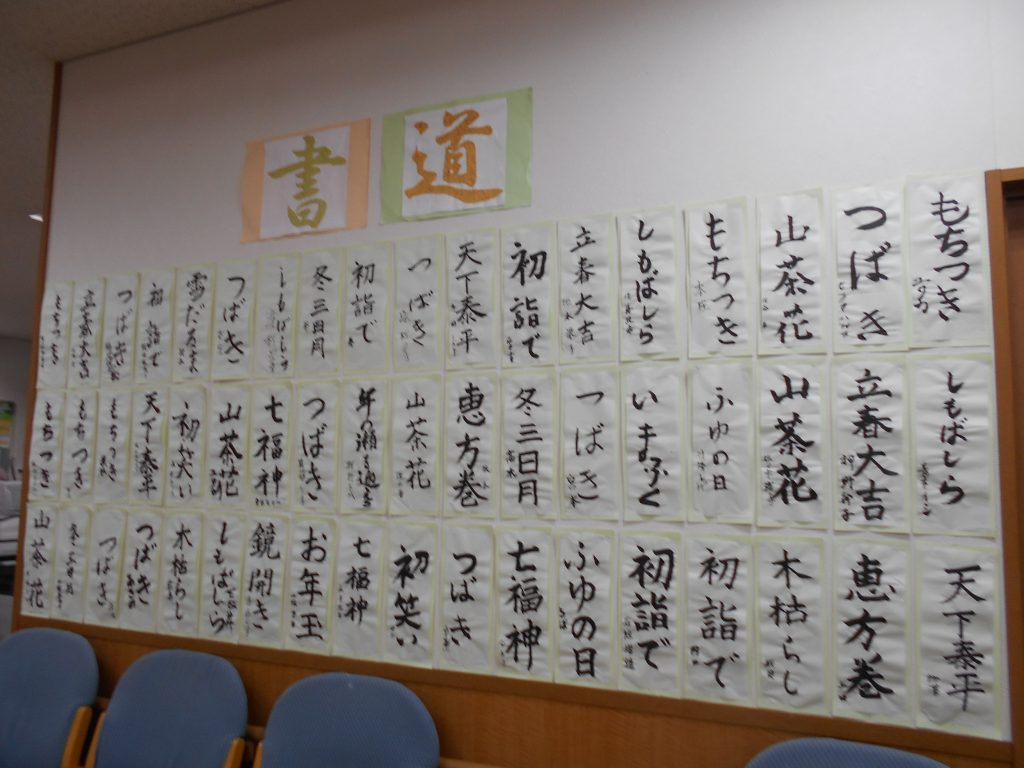 書道
もちつき
つばき
山茶花
もちつき
しもばしら
立春大吉
初詣で
天下泰平
つばき
初詣で
冬三日月
しもばしら
つばき
雪だるま
初詣で
つばき
立春大吉
もちつき
しもばしら
立春大吉
山茶花
ふゆの日
つばき
冬三日月
恵方巻
山茶花
つばき
七福神
山茶花
初笑い
天下泰平
もちつき
もちつき
もちつき
天下泰平
恵方巻
木枯らし
初詣で
初詣で
ふゆの日
七福神
つばき
初笑い
七福神
お年玉
鏡開き
しもばしら
木枯らし
つばき
つばき
山茶花